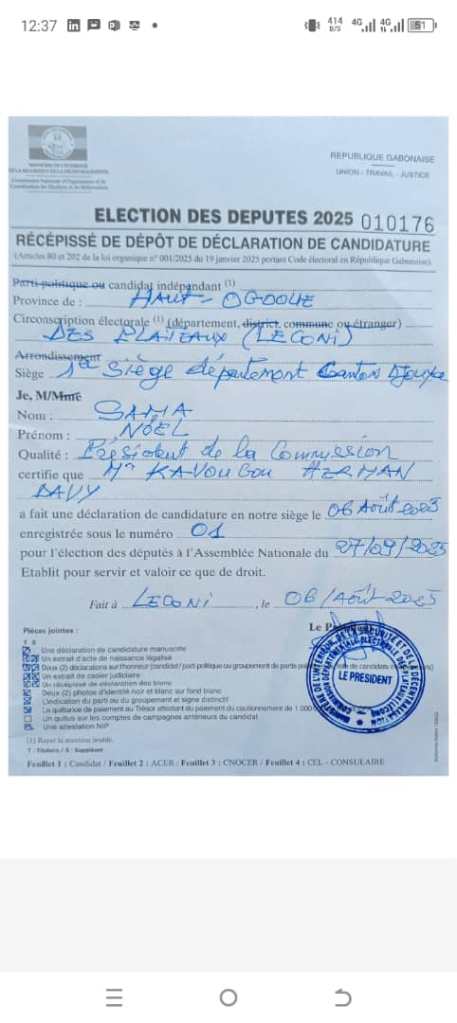 12:37
414
B/S
4G
4G
51
REPUBLIQUE GABONAISE
UNION - TRAVAIL - JUSTICE
ELECTION DES DEPUTES 2025 010176
RÉCÉPISSÉ DE DÉPÔT DE DÉCLARATION DE CANDIDATURE
(Articles 80 et 202 de la loi organique n° 001/2025 du 19 janvier 2025 portant Code électoral en République Gabonaise)
Parti politique ou candidat indépendant (1)
Province de : HAUT-OGOOUE
Circonscription électorale (1) (département, district, commune ou étranger)
DES PLATEAUX (LECONI)
Arrondissement
Siège 1er Siège département Canton Djouya
Je, M/Mme
Nom : SAMA
Prénom : NOËL
Qualité : Président de la Commission
certifie que Mr KAVOUGOU HERMAN
DAVY
a fait une déclaration de candidature en notre siège le 06 Août 2025
enregistrée sous le numéro 01
pour l'élection des députés à l'Assemblée Nationale du 27/09/2025
Etablit pour servir et valoir ce que de droit.
Fait à LECONI, le 06/Août 2025
Le P
LE PRESIDENT
Pièces jointes :
T S
Une déclaration de candidature manuscrite
Un extrait d'acte de naissance légalisé
Deux (2) déclarations sur l'honneur (candidat / parti politique ou groupement de partis
Un extrait de casier judiciaire
Un récépissé de déclaration des biens
Deux (2) photos d'identité noir et blanc sur fond blanc
L'indication du parti ou du groupement et signe distinctif
La quittance de paiement au Trésor attestant du paiement du cautionnement de 1 000
Un quitus sur les comptes de campagnes antérieurs du candidat
Une attestation NIP
(1) Rayer la mention inutile.
T : Titulaire / S : Suppléant
Feuillet 1 : Candidat / Feuillet 2 : ACER / Feuillet 3 : CNOCER / Feuillet 4 : CEL - CONSULAIRE